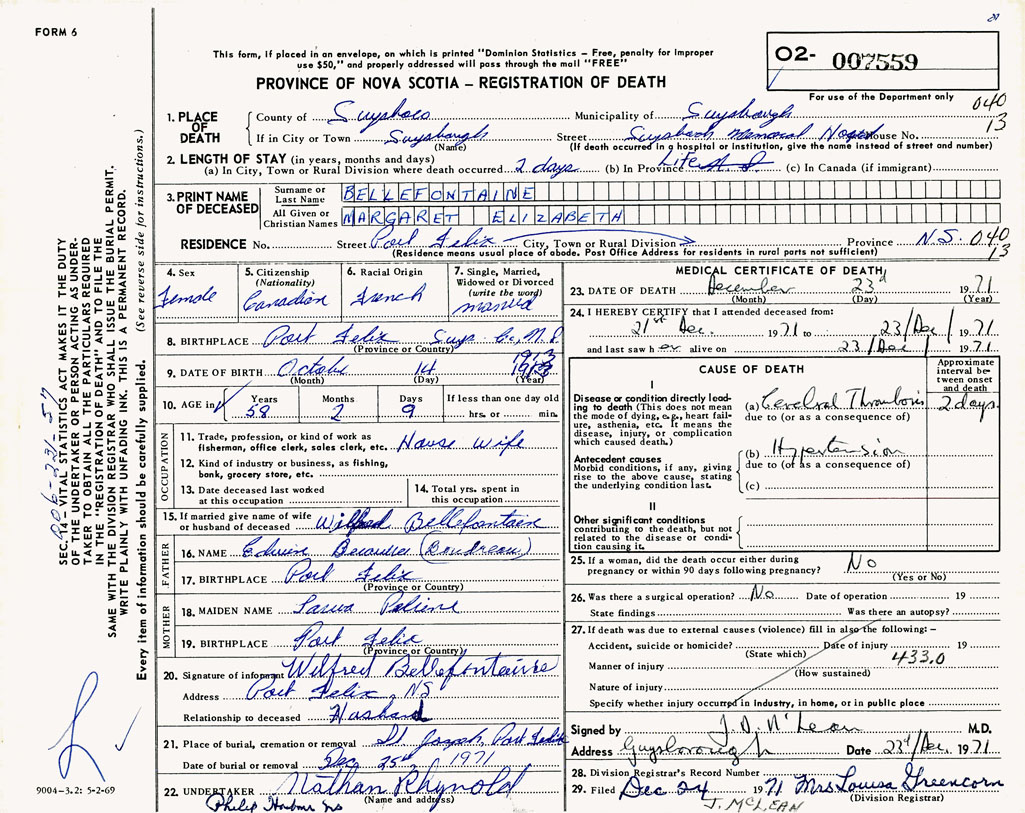 FORM 6
This form, if placed in an envelope, on which is printed "Dominion Statistics – Free, penalty for improper
use $50," and properly addressed will pass through the mail "FREE"
PROVINCE OF NOVA SCOTIA – REGISTRATION OF DEATH
O2- 007559
For use of the Department only
040
13
1. PLACE OF DEATH
County of Municipality of
If in City or Town Street House No.
(Name) (If death occurred in a hospital or institution, give the name instead of street and number)
2. LENGTH OF STAY (in years, months and days)
(a) In City, Town or Rural Division where death occurred 2 days (b) In Province Life (c) In Canada (if immigrant)
3. PRINT NAME OF DECEASED
Surname or Last Name BELLEFONTAINE
All Given or Christian Names MARGARET ELIZABETH
RESIDENCE No. Street Port Felix City, Town or Rural Division Province N.S. 040
13
(Residence means usual place of abode. Post Office Address for residents in rural parts not sufficient)
4. Sex
Female
5. Citizenship
(Nationality)
Canadian
6. Racial Origin
French
7. Single, Married,
Widowed or Divorced
(write the word)
married
8. BIRTHPLACE Port Felix Guys. Co. N.S.
(Province or Country)
9. DATE OF BIRTH October 14 1913
(Month) (Day) (Year)
10. AGE in Years Months Days If less than one day
58 2 9 hrs. or min.
OCCUPATION
11. Trade, profession, or kind of work as
fisherman, office clerk, sales clerk, etc. House Wife
12. Kind of industry or business, as fishing,
bank, grocery store, etc.
13. Date deceased last worked
at this occupation
14. Total yrs. spent in
this occupation
15. If married give name of wife
or husband of deceased Wilfred Bellefontaine
FATHER
16. NAME Edwin (Boudreau)
17. BIRTHPLACE Port Felix
(Province or Country)
MOTHER
18. MAIDEN NAME
19. BIRTHPLACE Port Felix
(Province or Country)
20. Signature of informant Wilfred Bellefontaine
Address Port Felix, NS
Relationship to deceased Husband
21. Place of burial, cremation or removal St Joseph, Port Felix
Date of burial or removal Dec 25th, 1971
22. UNDERTAKER Nathan Rhynold
(Name and address)
Philip Harbour NS
MEDICAL CERTIFICATE OF DEATH
23. DATE OF DEATH December 23d 1971
(Month) (Day) (Year)
24. I HEREBY CERTIFY that I attended deceased from:
21st Dec. 1971 to 23/Dec/1971
and last saw her alive on 23/Dec/1971
CAUSE OF DEATH
Approximate
interval be-
tween onset
and death
I
Disease or condition directly lead-
ing to death (This does not
mean the mode of dying, e.g., heart fail-
ure, asthenia, etc. It means the
disease, injury, or complication
which caused death.)
(a) Cerebral Thrombosis 2 days
due to (or as a consequence of)
Antecedent causes
Morbid conditions, if any, giving
rise to the above cause, stating
the underlying condition last.
(b) Hypertension
due to (or as a consequence of)
(c)
II
Other significant conditions
contributing to the death, but not
related to the disease or condi-
tion causing it.
25. If a woman, did the death occur either during
pregnancy or within 90 days following pregnancy? No
(Yes or No)
26. Was there a surgical operation? No Date of operation 19
State findings Was there an autopsy?
27. If death was due to external causes (violence) fill in also the following: –
Accident, suicide or homicide? Date of injury 19
(State which)
433.0
Manner of injury
(How sustained)
Nature of injury
Specify whether injury occurred in industry, in home, or in public place
Signed by J. D. McLean M.D.
Address Guysborough Date 23d/Dec. 1971
28. Division Registrar's Record Number
29. Filed Dec 24 1971 Mrs Louisa Greencorn
(Division Registrar)
J. McLEAN
SEC. 14 – VITAL STATISTICS ACT MAKES IT THE DUTY
OF THE UNDERTAKER OR PERSON ACTING AS UNDER-
TAKER TO OBTAIN ALL THE PARTICULARS REQUIRED
IN THE "REGISTRATION OF DEATH" AND TO FILE THE
SAME WITH THE DIVISION REGISTRAR WHO SHALL ISSUE THE BURIAL PERMIT.
WRITE PLAINLY WITH UNFADING INK. THIS IS A PERMANENT RECORD.
Every item of information should be carefully supplied. (See reverse side for instructions.)
9004-3.2: 5-2-69